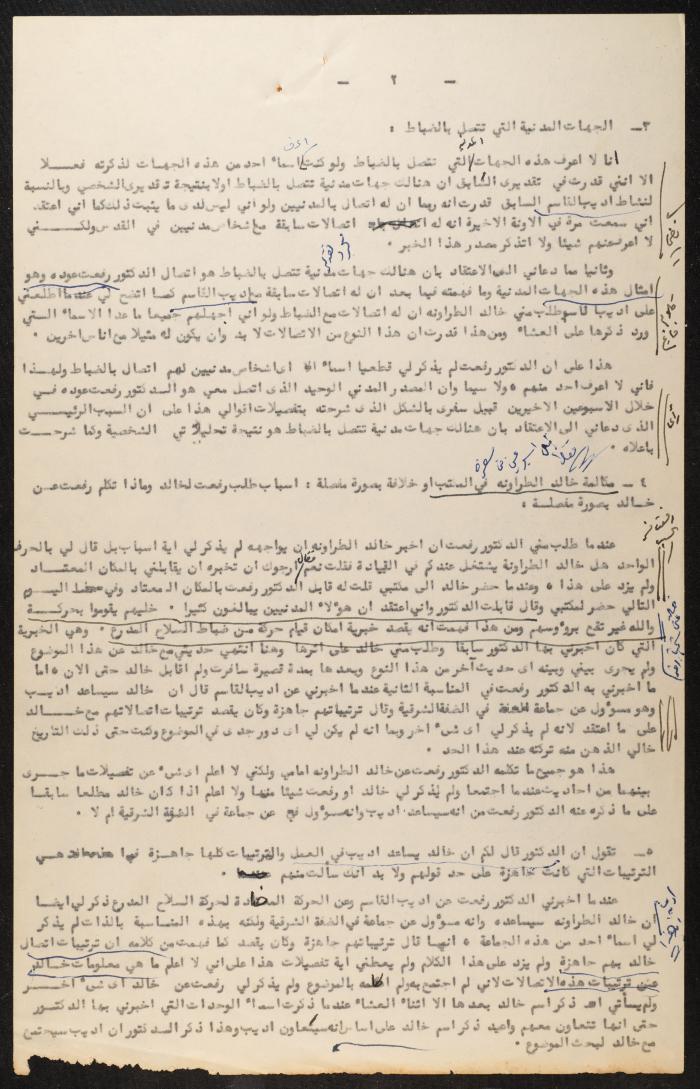 - ٢ -
٣- الجهات المدنية التي تتصل بالضباط :
انا لا اعرف هذه الجهات التي تتصل بالضباط ولو كنت اعرف اسماء احد من هذه الجهات لذكرته فعلا
الا انني قدرت في تقديري السابق ان هنالك جهات مدنية تتصل بالضباط اولا بنتيجة تقديري الشخصي وبالنسبة
لنشاط اديب القاسم السابق قدرت انه ربما ان له اتصال بالمدنيين ولو اني ليس لدى ما يثبت ذلك كما اني اعتقد
اني سمعت مرة في الاونة الاخيرة انه له اتصالات سابقة مع اشخاص مدنيين في القدس ولكني
لا اعرف عنهم شيئا ولا اتذكر مصدر هذا الخبر .
وثانيا مما دعاني الى الاعتقاد بان هنالك جهات مدنية تتصل بالضباط هو اتصال الدكتور رفعت عوده وهو
امثال هذه الجهات المدنية وما فهمته فيما بعد ان له اتصالات سابقة مع اديب القاسم كما اتضح لي عندما اطلعني
على اديب قاسم وطلب مني خالد الطراونه ان له اتصالات مع الضباط ولو اني اجهلهم جميعا ما عدا الاسماء التي
ورد ذكرها على العشاء ومن هذا قدرت ان هذا النوع من الاتصالات لا بد وان يكون له مثيلا مع اناس اخرين .
هذا على ان الدكتور رفعت لم يذكر لي قطعيا اسماء اي اشخاص مدنيين لهم اتصال بالضباط ولهذا
فاني لا اعرف احد منهم ولا سيما وان المصدر المدني الوحيد الذى اتصل معي هو الدكتور رفعت عوده في
خلال الاسبوعين الاخيرين قبيل سفرى بالشكل الذى شرحته بتفصيلات اقوالي هذا على ان السبب الرئيسي
الذى دعاني الى الاعتقاد بان هنالك جهات مدنية تتصل بالضباط هو نتيجة تحليلاتي الشخصية وكما شرحت
باعلاه .
٤ - مكالمة خالد الطراونه في المكتب او خلافة بصورة مفصلة : اسباب طلب رفعت لخالد وماذا تكلم رفعت عن
خالد بصورة مفصلة :
عندما طلب مني الدكتور رفعت ان اخبر خالد الطراونه ان يواجهه لم يذكر لي اية اسباب بل قال لي بالحرف
الواحد هل خالد الطراونة يشتغل عندكم في القيادة فقلت نعم فقال ارجوك ان تخبره ان يقابلني بالمكان المعتاد
ولم يزد على هذا وعندما حضر خالد الى مكتبي قلت له قابل الدكتور رفعت بالمكان المعتاد وفي اليوم
التالي حضر لمكتبي وقال قابلت الدكتور واني اعتقد ان هؤلاء المدنيين يبالغون كثيرا . خليهم يقوموا بحركة
والله غير تقع برؤوسهم ومن هذا فهمت انه يقصد خبرية امكان قيام حركة من ضباط السلاح المدرع . وهي الخبرية
التي كان اخبرني بها الدكتور سابقا وطلب مني خالد على اثرها وهنا انتهى حديثي مع خالد عن هذا الموضوع
ولم يجرى بيني وبينه اى حديث آخر من هذا النوع وبعدها بمدة قصيرة سافرت ولم اقابل خالد حتى الان اما
ما اخبرني به الدكتور رفعت في المناسبة الثانية عندما اخبرني عن اديب القاسم قال ان خالد سيساعد اديب
وهو مسؤول عن جماعة في الضفة الشرقية وقال ترتيباتهم جاهزة وكان يقصد ترتيبات اتصالاتهم مع خالد
على ما اعتقد لانه لم يذكر لي اى شيء اخر وبما انه لم يكن لي اى دور جدى في الموضوع وكنت حتى ذلك التاريخ
خالي الذهن منه تركته عند هذا الحد .
هذا هو جميع ما تكلمه الدكتور رفعت عن خالد الطراونه امامي ولكني لا اعلم اى شيء عن تفصيلات ما جرى
بينهما من احاديث عندما اجتمعا ولم يذكر لي خالد او رفعت شيئا منها ولا اعلم اذا كان خالد مطلعا سابقا
على ما ذكره عنه الدكتور رفعت من انه سيساعد اديب وانه مسؤول عن جماعة في الضفة الشرقية ام لا .
٥- تقول ان الدكتور قال لكم ان خالد يساعد اديب في العمل والترتيبات كلها جاهزة فما هي
الترتيبات التي كانت جاهزة على حد قولهم ولا بد انك سألت منهم
عندما اخبرني الدكتور رفعت عن اديب القاسم وعن الحركة المضادة لحركة السلاح المدرع ذكر لي ايضا
ان خالد الطراونه سيساعده وانه مسؤول عن جماعة في الضفة الشرقية ولكنه بهذه المناسبة بالذات لم يذكر
لي اسماء احد من هذه الجماعة انما قال ترتيباتهم جاهزة وكان يقصد كما فهمت من كلامه ان ترتيبات اتصال
خالد بهم جاهزة ولم يزد على هذا الكلام ولم يعطني اية تفصيلات هذا على اني لا اعلم ما هي معلومات خالد
عن ترتيبات هذه الاتصالات لاني لم اجتمع به ولم اكلمه بالموضوع ولم يذكر لي رفعت عن خالد اى شيء اخر
ولم يأتي ذكر اسم خالد بعدها الا اثناء العشاء عندما ذكرت اسماء الوحدات التي اخبرني بها الدكتور
حتى انها تتعاون معهم واعيد ذكر اسم خالد على اساس انه سيتعاون اديب وهذا ذكر الدكتور ان اديب سيجتمع
مع خالد لبحث الموضوع .